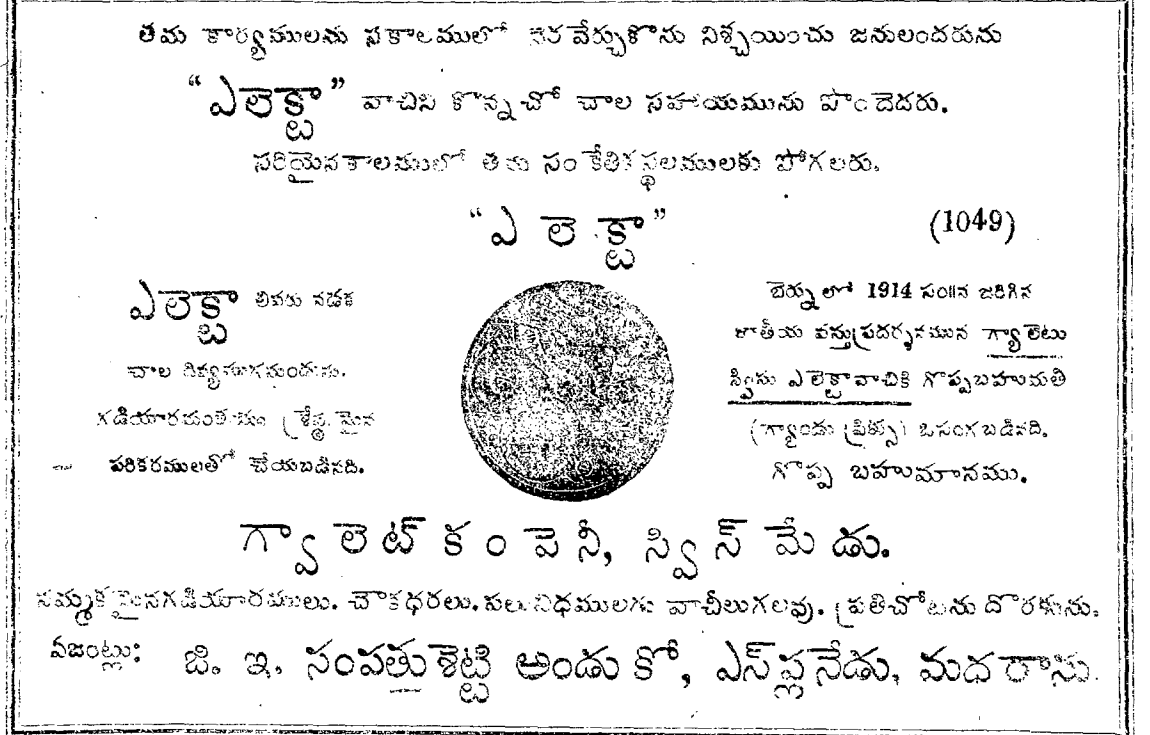 తమ కార్యములను సకాలములో నెరవేర్చుకొను నిశ్చయించు జనులందరును
“ఎలెక్టా” వాచిని కొన్నచో చాల సహాయమును పొందెదరు.
సరియైనకాలములో తమ సంకేతికస్థలములకు పోగలరు.
“ఎ లె క్టా” (1049)
ఎలెక్టా లివరు నడక
చాల దివ్యముగనుండును.
గడియారమంతయు శ్రేష్ఠమైన
పరికరములతో చేయబడినది.
బెర్ను లో 1914 సం॥న జరిగిన
జాతీయ వస్తుప్రదర్శనమున గ్యాలెటు
స్విసు ఎలెక్టావాచికి గొప్పబహుమతి
(గ్యాండు ప్రిక్సు) ఒసంగబడినది.
గొప్ప బహుమానము.
గ్యాలెట్ కంపెనీ, స్విస్ మేడు.
నమ్మకమైనగడియారములు. చౌకధరలు. పలువిధములగు వాచీలుగలవు. ప్రతిచోటను దొరకును.
ఏజంట్లు: జి. ఇ. సంపత్తుశెట్టి అండు కో, ఎస్ప్లనేడు, మదరాసు.